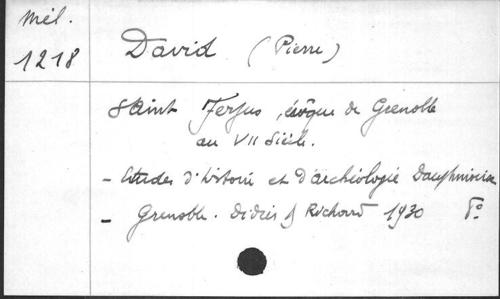 Mél.
1218
David (Pierre)
Saint Ferjus, évêque de Grenoble
au VII siècle.
- Etudes d'histoire et d'archéologie Dauphinoise
- Grenoble. Didier & Richard 1930 8º